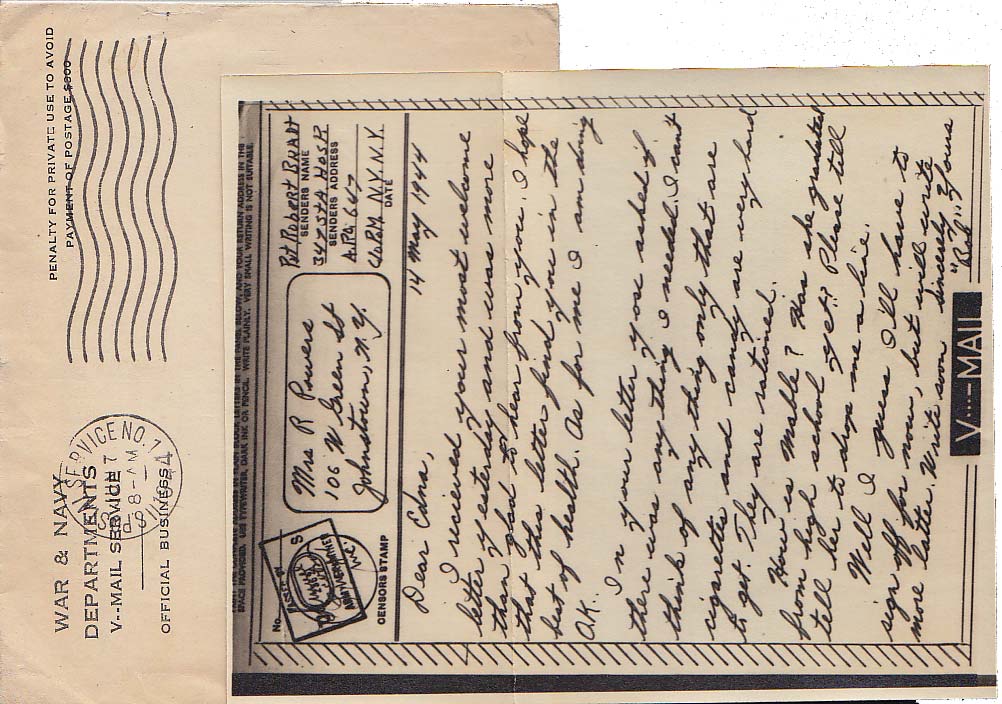 WAR & NAVY
DEPARTMENTS
V--MAIL SERVICE
OFFICIAL BUSINESS
SERVICE NO. 1
8-AM
1944
PENALTY FOR PRIVATE USE TO AVOID
PAYMENT OF POSTAGE $300
SPACE PROVIDED. USE TYPEWRITER, DARK INK OR PENCIL. WRITE PLAINLY. VERY SMALL WRITING IS NOT SUITABLE.
No.
PASSED BY
ARMY EXAMINER
CENSORS STAMP
Mrs R Powers
106 W Green St
Johnstown, N.Y.
Pvt Robert
SENDERS NAME
347 STA HOSP
SENDERS ADDRESS
A.P.O. 647
℅ P.M. N.Y. N.Y.
DATE
14 May 1944
Dear Edna,
I recieved your most welcome
letter yesterday and was more
than glad to hear from you. I hope
that this letter find you in the
best of health. As for me I am doing
O.K.
In your letter you asked if
there was anything I needed. I can't
think of anything only that are
cigarettes and candy are very hard
to get. They are rationed.
How is Mable? Has she graduated
from high school yet? Please tell
tell her to drop me a line.
Well I guess I'll have to
sign off for now, but will write
more later. Write soon
Sincerely Yours
"Bob"
V···—MAIL